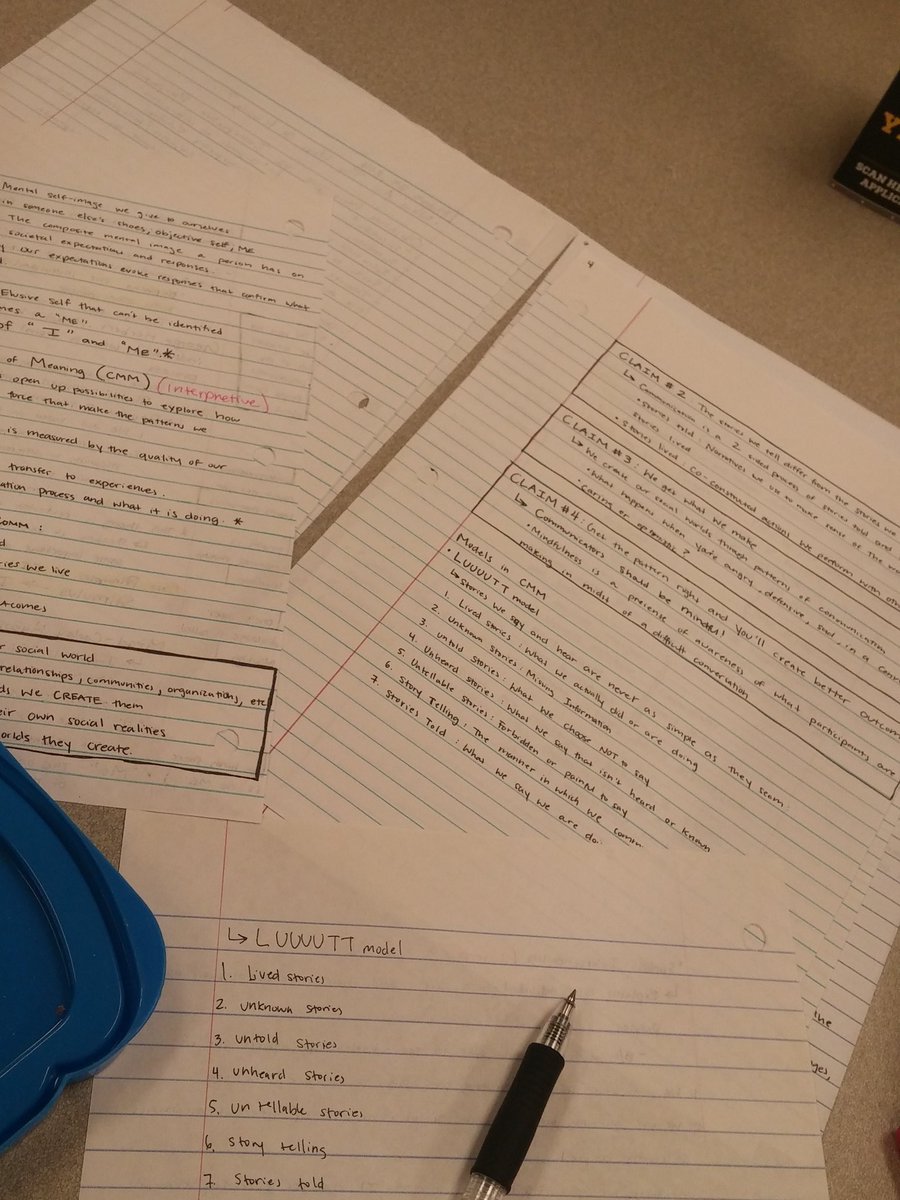 Mental self-image we give to ourselves
in someone else's shoes, objective self, ME
The composite mental image a person has on
societal expectations and responses.
our expectations evoke responses that confirm what
Elusive self that can't be identified
a "ME"
of "I" and "Me".*
of Meaning (CMM) (interpretive)
open up possibilities to explore how
force that make the patterns we
is measured by the quality of our
transfer to experiences.
process and what it is doing. *
we live
social world
relationships, communities, organizations, etc
we CREATE them
own social realities
they create.
4
CLAIM #2: The stories we tell differ from the stories we
↳ Communication is a 2 sided process of stories told and
stories lived
• Stories told: Narratives we use to make sense of the
• Stories lived: Co-constructed actions we perform with
CLAIM #3: We get what we make
↳ We create our social worlds through patterns of communication
• What happens when you're angry, defensive, sad, in a
caring or optimistic?
CLAIM #4: Get the pattern right and you'll create better
↳ Communicators should be mindful!
• Mindfulness is a presense of awareness of what participants are
making in midst of a difficult conversation
Models in CMM
• LUUUUTT model
↳ Stories we say and hear are never as simple as they seem.
1. Lived stories: What we actually did or are doing
2. Unknown stories: Missing Information
3. untold stories: What we choose NOT to say
4. Unheard stories: What we say that isn't heard or known
5. Untellable stories: Forbidden or painful to say
6. Story Telling: The manner in which we
7. Stories Told: What we say we are
↳ LUUUUTT model
1. Lived stories
2. unknown stories
3. untold stories
4. unheard stories
5. un tellable stories
6. story telling
7. Stories told
the
SCAN